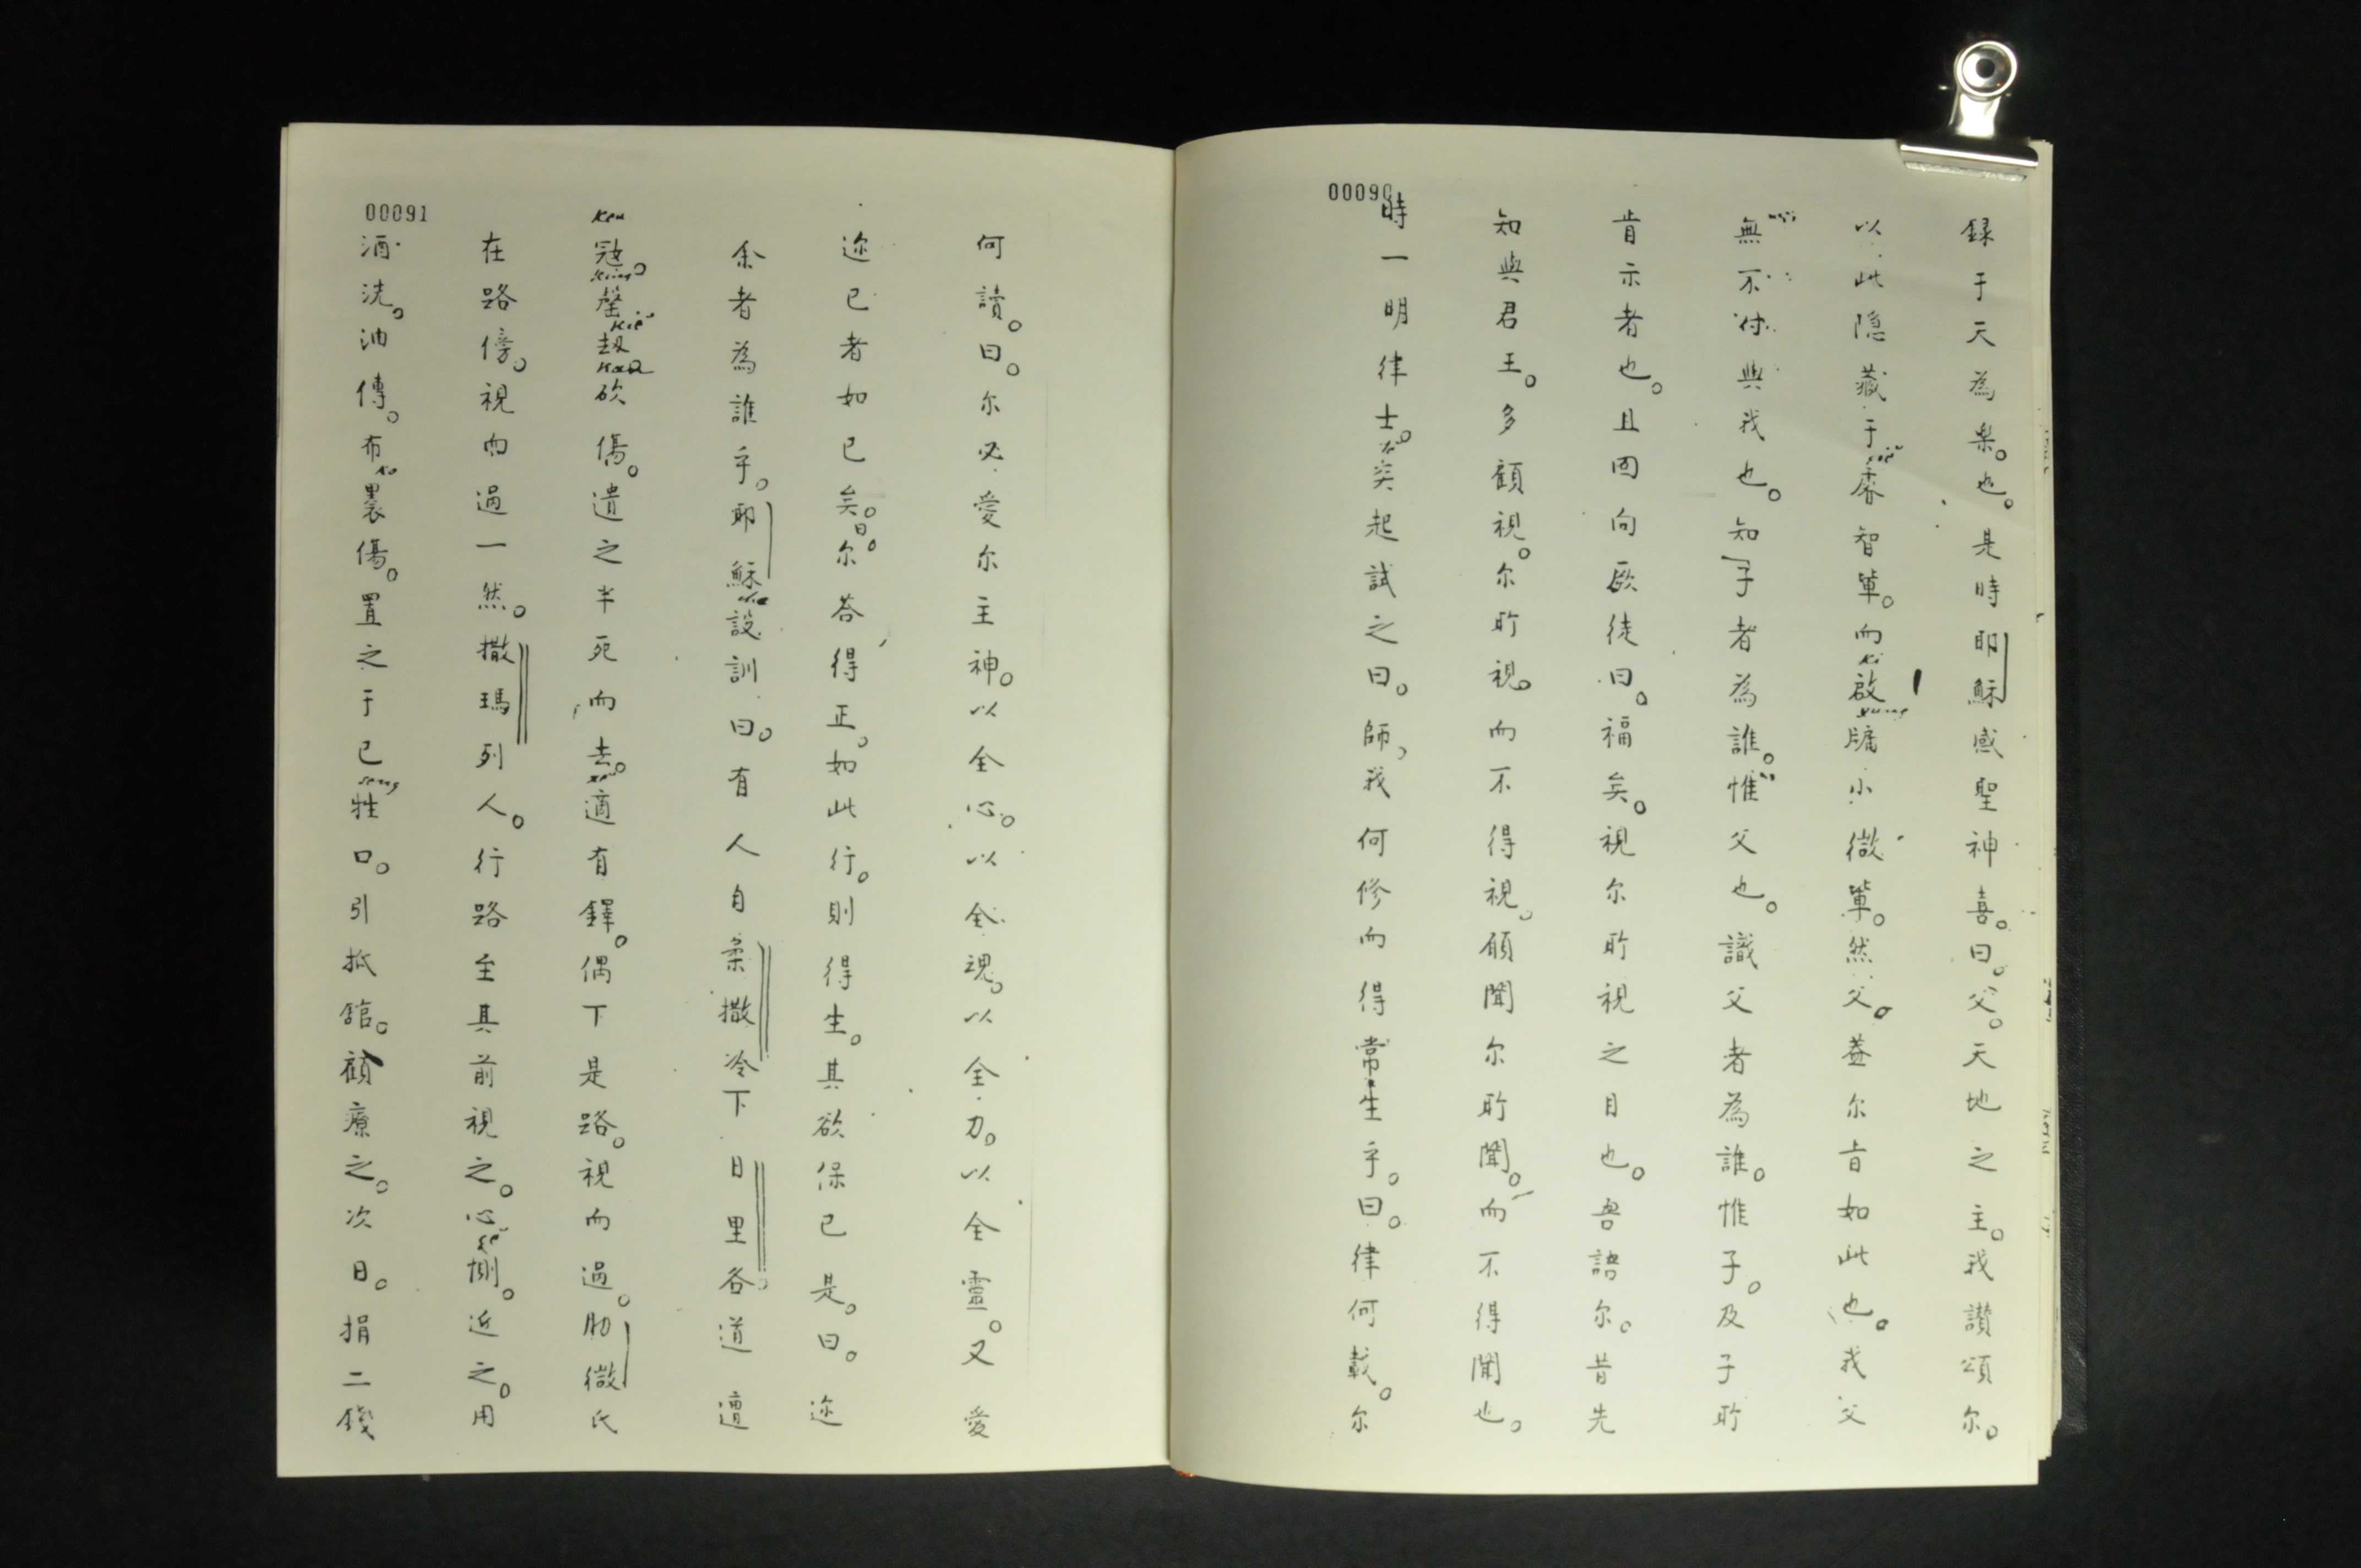 00090
録于天為楽。也。是時耶穌感聖神喜。曰。父。天地之主。我讚頌尔。
以此隐藏于睿智軰。而啟牗小微軰。然父。盖尔旨如此也。我父
無不付與我也。知子者為誰。惟父也。識父者為誰。惟子。及子所
肯示者也。且回向厥徒曰。福矣。視尔所視之目也。吾語尔。昔先
知與君王。多願視。尔所視。而不得視。願聞尔所聞。而不得聞也。
時一明律士。突起試之曰。師,我何修而得常生乎。曰。律何載。尔
00091
何讀。曰。尔必愛尔主神。以全心。以全魂。以全力。以全靈。又愛
迩已者如已矣。曰。尔荅得正。如此行。則得生。其欲保已是。曰。迩
余者為誰乎。耶穌設訓曰。有人自柔撒冷下日里各。道遭
ken
宼。罄刼砍傷。遺之半死而去。適有鐸。偶下是路。視而過。肋微氏
在路傍。視而過一然。撒瑪列人。行路至其前視之。心惻。近之。用
酒洗。油傅。布裹傷。置之于已牲口。引抵舘。顧療之。次日。捐二錢